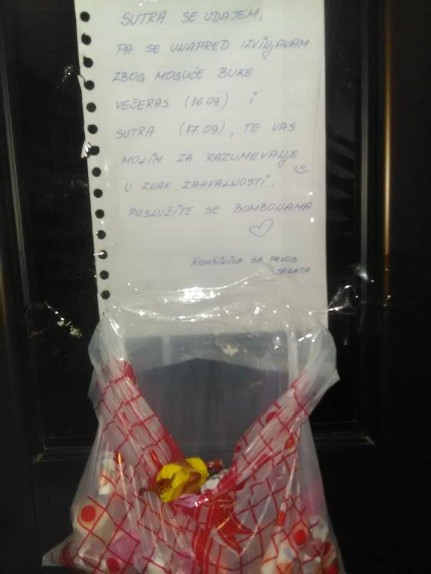 SUTRA SE UDAJEM,
PA SE UNAPRED IZVINJAVAM
ZBOG MOGUĆE BUKE
VEČERAS (16.09) I
SUTRA (17.09), TE VAS
MOLIM ZA RAZUMEVANJE
U ZNAK ZAHVALNOSTI,
POSLUŽITE SE BOMBONAMA
KOMŠINICA SA PRVOG
SPRATA